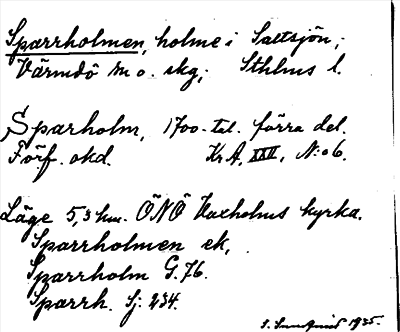 Sparrholmen, holme i Saltsjön,;
Värmdö m o. skg,; Sthlms l.
Sparholm, 1700-tal. förra del.
Förf. okd. Kr. A. XXII, N:o 6.
Läge 5,3 km. ÖNÖ Vaxholms kyrka.
Sparrholmen ek,
Sparrholm G. 76.
Sparrh. Sj: 234.
1935.